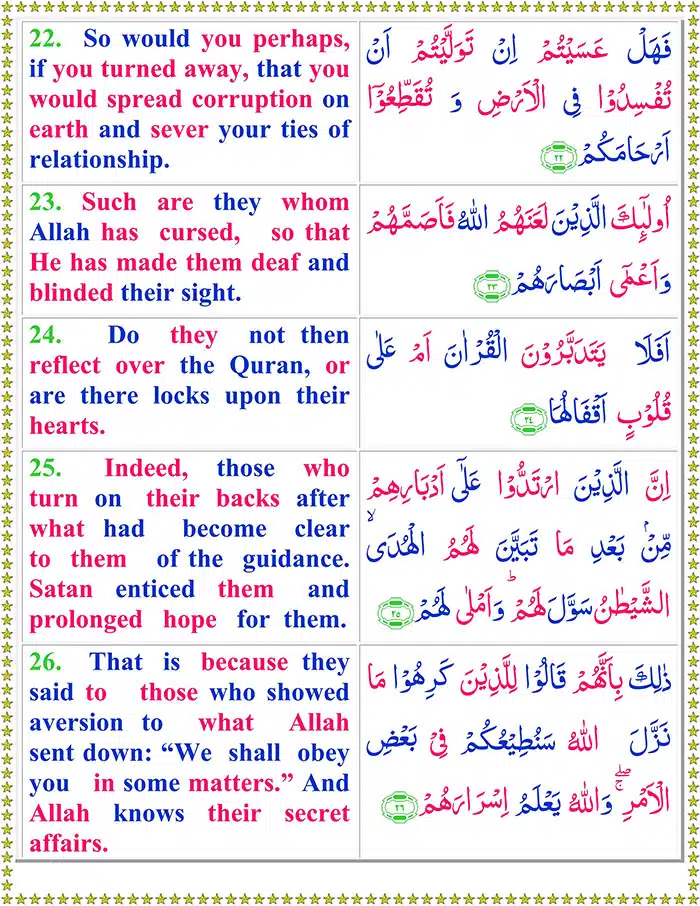 22. So would you perhaps,
if you turned away, that you
would spread corruption on
earth and sever your ties of
relationship.
فَهَلْ عَسَيْتُمْ اِنْ تَوَلَّيْتُمْ اَنْ
تُفْسِدُوْا فِى الْاَرْضِ وَ تُقَطِّعُوْۤا
اَرْحَامَكُمْ ﴿۲۲﴾
23. Such are they whom
Allah has cursed, so that
He has made them deaf and
blinded their sight.
اُولٰٓئِكَ الَّذِيْنَ لَعَنَهُمُ اللّٰهُ فَاَصَمَّهُمْ
وَاَعْمٰٓى اَبْصَارَهُمْ ﴿۲۳﴾
24. Do they not then
reflect over the Quran, or
are there locks upon their
hearts.
اَفَلَا يَتَدَبَّرُوْنَ الْقُرْاٰنَ اَمْ عَلٰى
قُلُوْبٍ اَقْفَالُهَا ﴿۲۴﴾
25. Indeed, those who
turn on their backs after
what had become clear
to them of the guidance.
Satan enticed them and
prolonged hope for them.
اِنَّ الَّذِيْنَ ارْتَدُّوْا عَلٰٓى اَدْبَارِهِمْ
مِّنْۢ بَعْدِ مَا تَبَيَّنَ لَهُمُ الْهُدَى ۙ
الشَّيْطٰنُ سَوَّلَ لَهُمْ ؕ وَاَمْلٰى لَهُمْ ﴿۲۵﴾
26. That is because they
said to those who showed
aversion to what Allah
sent down: “We shall obey
you in some matters.” And
Allah knows their secret
affairs.
ذٰلِكَ بِاَنَّهُمْ قَالُوْا لِلَّذِيْنَ كَرِهُوْا مَا
نَزَّلَ اللّٰهُ سَنُطِيْعُكُمْ فِىْ بَعْضِ
الْاَمْرِ ۖۚ وَاللّٰهُ يَعْلَمُ اِسْرَارَهُمْ ﴿۲۶﴾